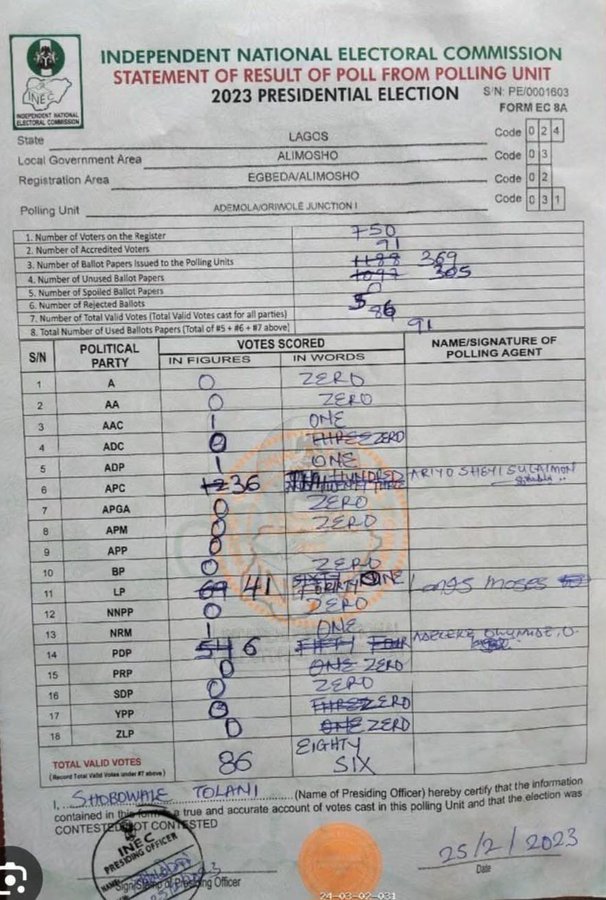 INEC
INDEPENDENT NATIONAL
ELECTORAL COMMISSION
INDEPENDENT NATIONAL ELECTORAL COMMISSION
STATEMENT OF RESULT OF POLL FROM POLLING UNIT
2023 PRESIDENTIAL ELECTION S/N: PE/0001603
FORM EC 8A
State LAGOS Code 0 2 4
Local Government Area ALIMOSHO Code 0 3
Registration Area EGBEDA/ALIMOSHO Code 0 2
Polling Unit ADEMOLA/ORIWOLE JUNCTION I Code 0 3 1
1. Number of Voters on the Register 750
2. Number of Accredited Voters 91
3. Number of Ballot Papers Issued to the Polling Units 1188 369
4. Number of Unused Ballot Papers 1097 305
5. Number of Spoiled Ballot Papers 0
6. Number of Rejected Ballots 5
7. Number of Total Valid Votes (Total Valid Votes cast for all parties) 86
8. Total Number of Used Ballots Papers (Total of #5 + #6 + #7 above) 91
S/N POLITICAL PARTY VOTES SCORED NAME/SIGNATURE OF POLLING AGENT
IN FIGURES IN WORDS
1 A 0 ZERO
2 AA 0 ZERO
3 AAC 1 ONE
4 ADC 0 THREE ZERO
5 ADP 1 ONE
6 APC 36 HUNDRED ARIYO SHEYI SULAIMON
7 APGA 0 ZERO
8 APM 0 ZERO
9 APP 0
10 BP 0 ZERO
11 LP 69 41 SIXTY ONE MOSES
12 NNPP 0 ZERO
13 NRM 1 ONE
14 PDP 54 6 FIFTY FOUR
15 PRP 0 ONE ZERO
16 SDP 0 ZERO
17 YPP 0 THREE ZERO
18 ZLP 0 ONE ZERO
TOTAL VALID VOTES 86 EIGHTY SIX
(Record Total Valid Votes under #7 above)
I, SHOBOWALE TOLANI (Name of Presiding Officer) hereby certify that the information
contained in this form is a true and accurate account of votes cast in this polling Unit and that the election was
CONTESTED/NOT CONTESTED
INEC
PRESIDING OFFICER
Sign/Stamp of Presiding Officer
25/2/2023
Date
24-03-02-031